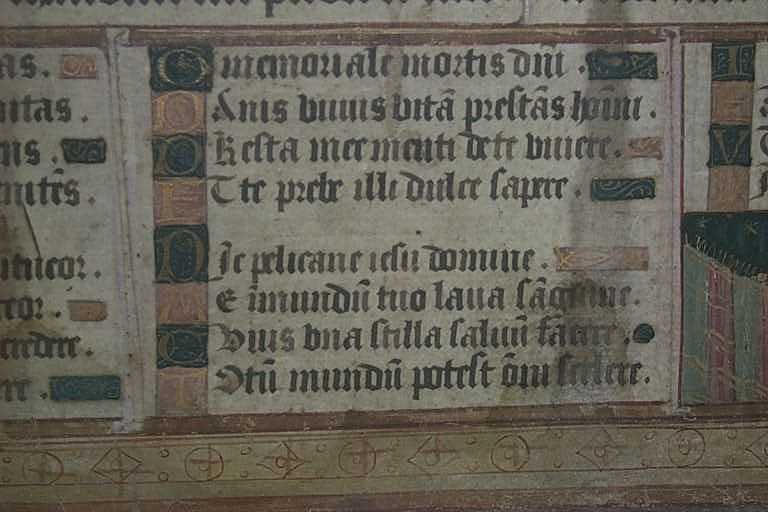 as.
itas.
ns.
nitēs.
credere.
O memoriale mortis dñi.
PAnis viuus vitā prestās hōini.
PResta mee menti de te viuere.
ET te prebe illi dulce sapere.
PIe pelicane iesu domine.
ME īmundū tuo laua sāguine.
CVius vna stilla saluū facere.
TOtū mundū potest oīm scelere.